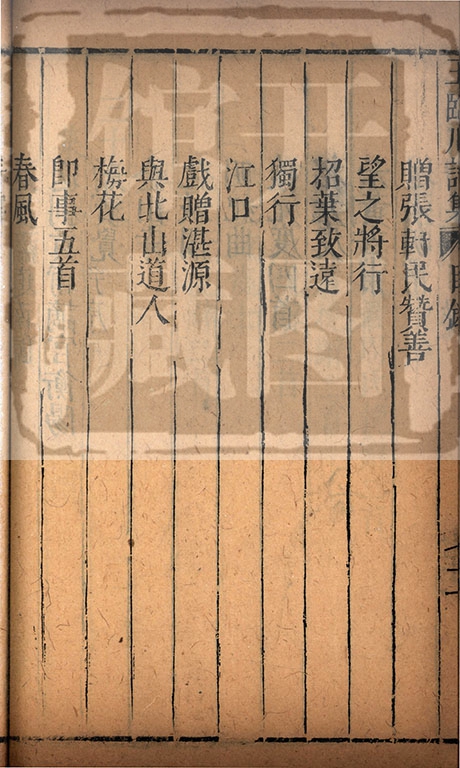 王臨川詩集 目錄
贈張軒民贊善
望之將行
招葉致遠
獨行
江口
戲贈湛源
與北山道人
梅花
卽事五首
春風